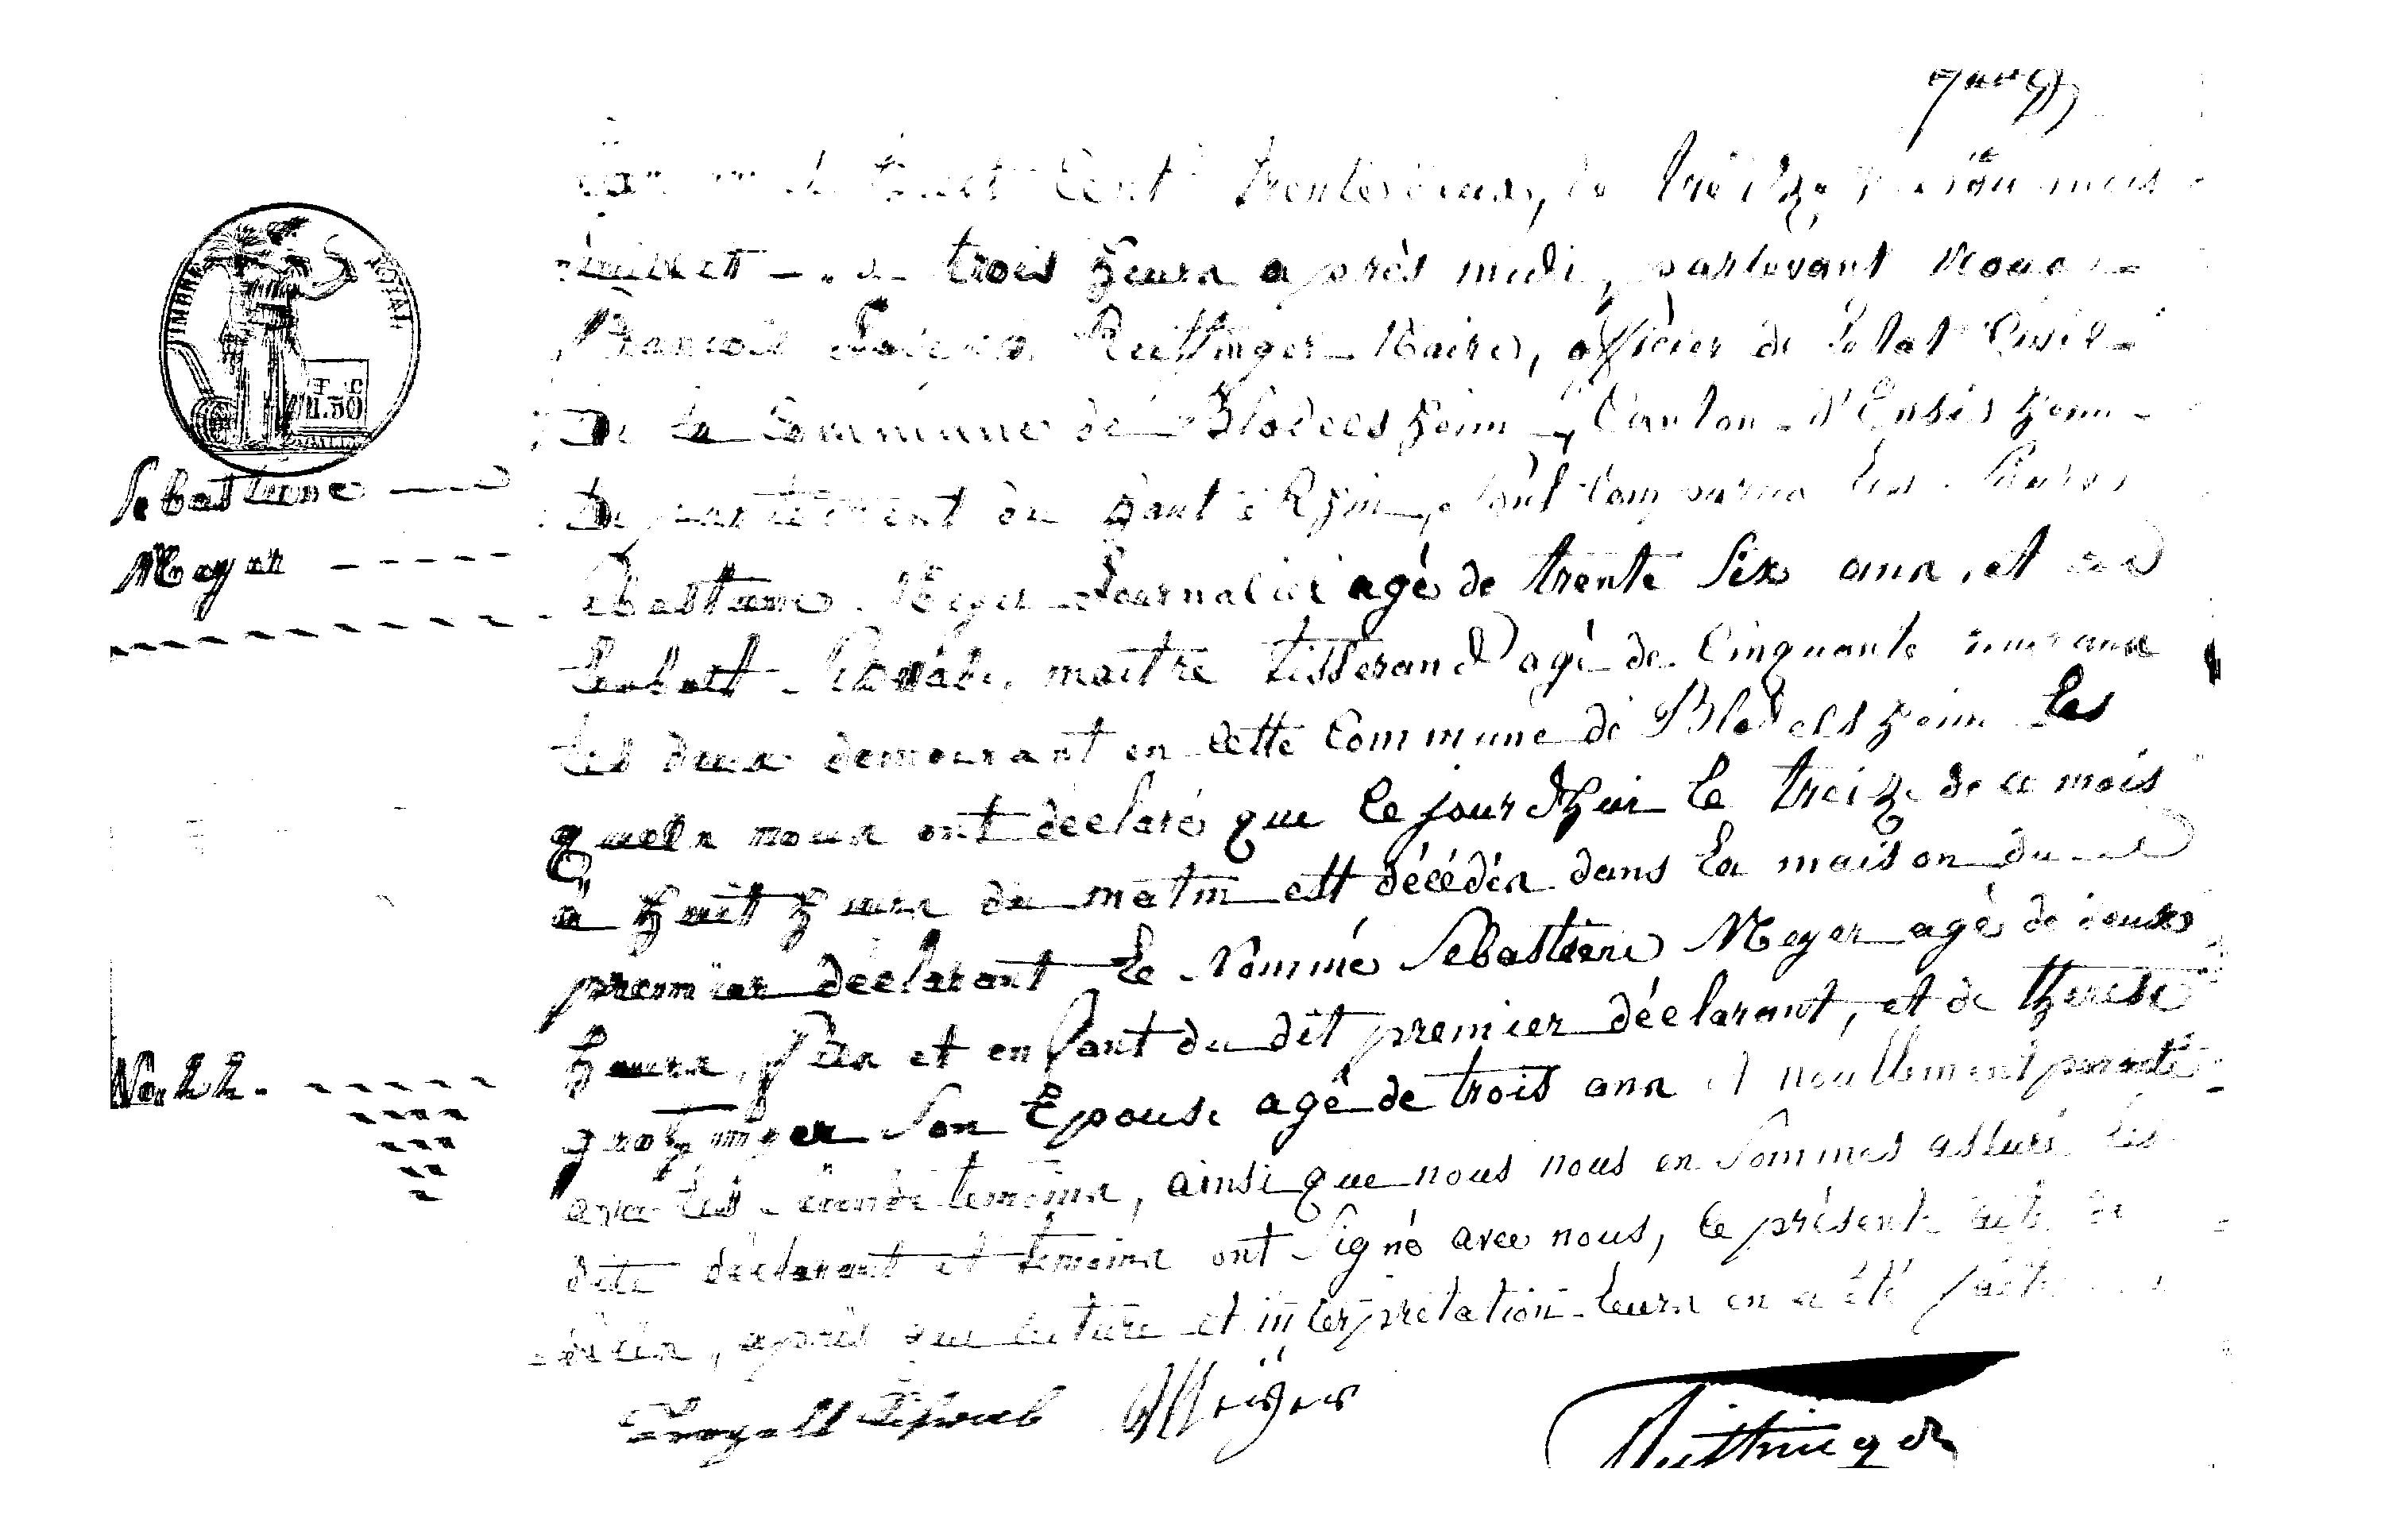 huit Cent trente deux, le treize du mois
juillet trois heurs après midi, pardevant Nous
François Maire, officier de l'etat Civil
De la Commune de Blodelsheim, Canton d'Ensisheim
Departement du haut Rhin, sont comparus les
Sebastiene Meyer Journalier agé de trente six ans, et
maitre tisserand agé de Cinquante ans
les deux demeurant en cette Commune de Blodelsheim les
quels nous ont déclaré que le jourdhui le treize de ce mois
à huit heurs du matin est décédés dans la maison du
premier declarant le Nommé Sebastiene Meyer agé de deux
heurs, fils et enfant du dit premier déclarant, et de therese
son Epouse agé de trois ans et noullement parenté
avec les temoins, ainsi que nous nous en sommes assuré, les
dits declarant et temoins ont signé avec nous, le présent acte de
décès, après que lecture et interprétation leurs en a été faite
Meÿer
TIMBRE ROYAL
Sebastiene
Meyer
No. 22.